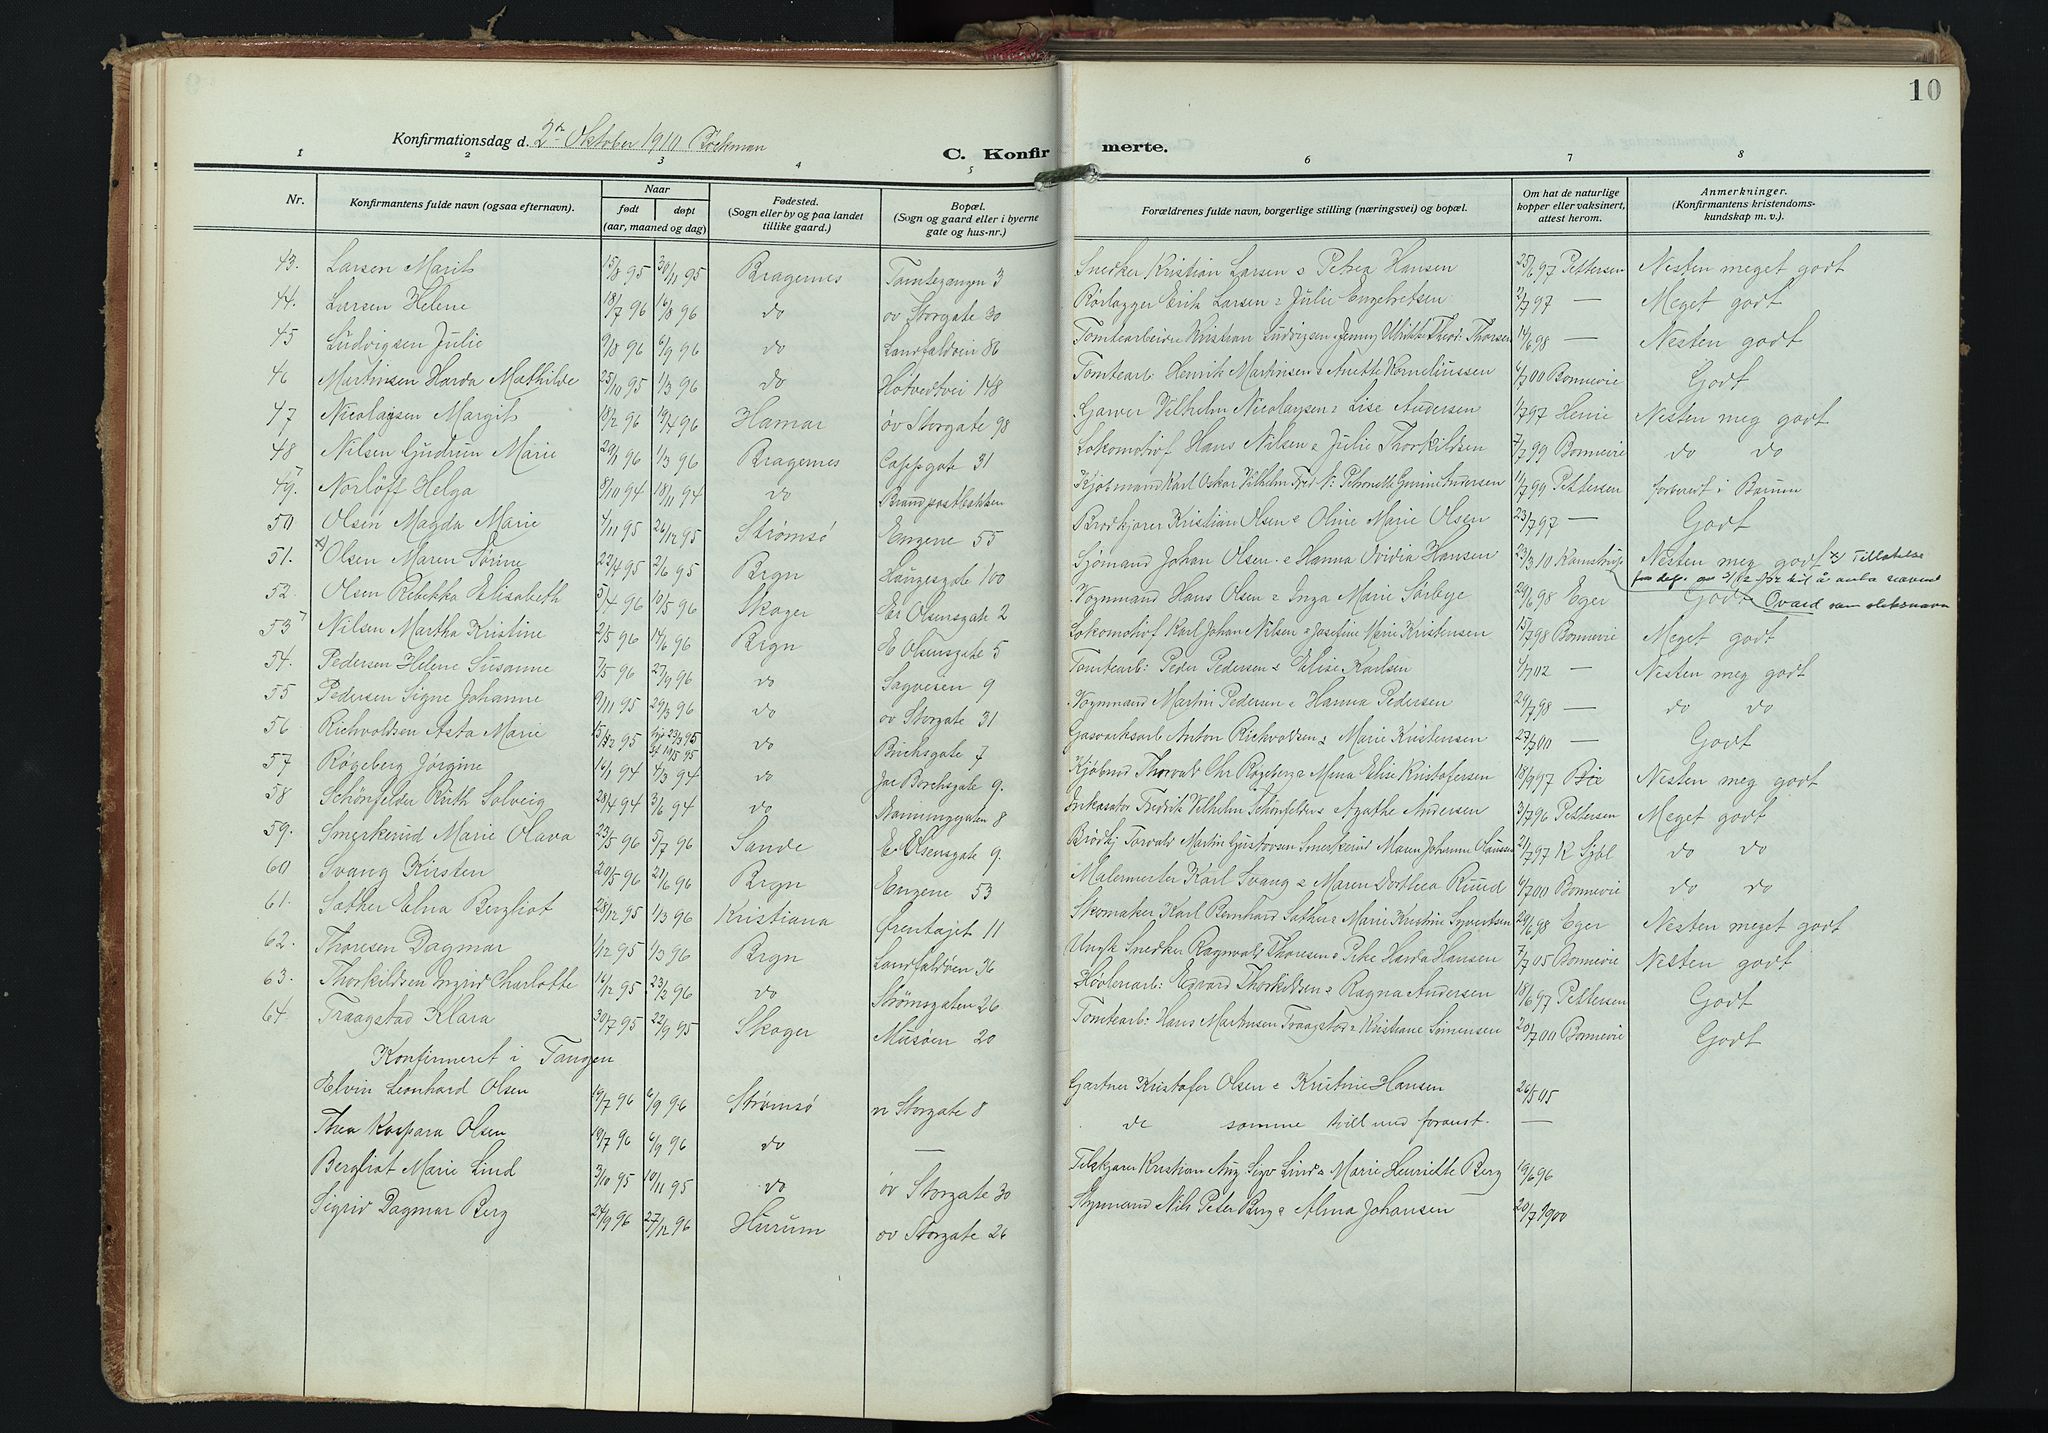 10
Konfirmationsdag d. 2den Oktober 1910 Böckman
C. Konfirmerte.
1 2 3 4 5 6 7 8
Nr. Konfirmantens fulde navn (ogsaa efternavn). Naar født døpt (aar, maaned og dag) Fødested. (Sogn eller by og paa landet tillike gaard.) Bopæl. (Sogn og gaard eller i byerne gate og hus-nr.) Forældrenes fulde navn, borgerlige stilling (næringsvei) og bopæl. Om hat de naturlige kopper eller vaksinert, attest herom. Anmerkninger. (Konfirmantens kristendoms-kundskap m. v.).
43. Larsen Marit 15/8 95 30/11 95 Bragernes Tomtegangen 3 Snedker Kristian Larsen o Petrea Hansen 25/6 97 Pettersen Nesten meget godt
44. Larsen Helene 18/7 96 16/8 96 do øv Storgate 30 Rörlægger Erik Larsen o Julie Engebretsen 2/7 97 — Meget godt
45 Ludvigsen Julie 9/8 96 6/9 96 do Landfaldvein 86 Tomtearbeider Kristian Ludvigsen o Jenny Thorsen 14/6 98 — Nesten godt
46 Martinsen Harda Mathilde 25/10 95 1/3 96 do Hotvedtvei 148 Tomtearb: Henrik Martinsen o Anette Korneliussen 6/7 00 Bonnevie Godt
47 Nicolaysen Margit 18/2 96 19/4 96 Hamar øv Storgate 98 Garver Vilhelm Nicolaysen o Lise Andersen 1/7 97 Nesten meg godt
48 Nilsen Gudrun Marie 29/1 96 1/3 96 Bragernes Cappsgate 31 Lokomotivf Hans Nilsen o Julie Thorkildsen 7/7 99 Bonnevie do do
49. Norløff Helga 8/10 94 18/11 94 do Brandpostbakken Kjøbmand Karl Oskar Vilhelm Andersen 11/7 99 Pettersen forberedt i Bærum
50 Olsen Magda Marie 4/11 95 26/12 95 Strømsø Engene 55 Brødkjører Kristian Olsen o Oline Marie Olsen 23/7 97 — Godt
51. x) Olsen Maren Torine 23/4 95 2/6 95 Brgn Haugesgate 100 Sjömand Johan Olsen o Hanna Ovidia Hansen 23/3 10 Kamstrup Nesten meg godt x) Tillatelse
52. Olsen Rebekka Elisabeth 5/4 96 10/5 96 Skoger Er Olsensgate 2 Vognmand Hans Olsen o Inga Marie Sørbye 29/6 98 Eger Godt Ovard som slektsnavn
53 Nilsen Martha Kristine 2/5 96 14/6 96 Brgn E Olsensgate 5 Lokomotivf Karl Johan Nilsen o Josefine Marie Kristensen 15/7 98 Bonnevie Meget godt
54. Pedersen Helene Susanne 7/5 96 27/9 96 do Sagveien 9 Tomtearb: Peder Pedersen o Elise Karlsen 4/7 02 — Nesten meg godt
55 Pedersen Signe Johanne 9/11 95 29/3 96 do øv Storgate 31 Vognmand Martin Pedersen o Hanna Pedersen 29/7 98 — do do
56 Richvoldsen Asta Marie do 4 Gasværksarb Anton Richvoldsen o Marie Kristensen 27/7 00 — Godt
57 Røgeberg Jørgine 16/1 94 4/3 94 do Jac Borchsgate 9. Kjøbmd Thorvald Chr Røgeberg o Mena Elise Kristofersen 18/9 97 Nesten meg godt
58 Schönfelder Ruth Solveig 28/4 94 3/6 94 do 8 Inkasator Fredrik Vilhelm Schönfelder o Agathe Andersen 3/7 96 Pettersen Meget godt
59. Smerkerud Marie Olava 23/5 96 5/7 96 Sande E Olsensgate 9. Brödkj Torvald Martin Gustavsen Smerkerud Maren Johanne 21/7 97 do do
60 Svang Kirsten 20/5 96 21/6 96 Brgn Engene 53 Malermester Karl Svang o Maren Dorthea Ruud 6/7 00 Bonnevie do do
61. Sæther Elna Bergliot 28/12 95 1/3 96 Kristiana Ørentøjet 11 Skomaker Karl Bernhard Sæther o Marie Kristine Syvertsen 29/6 98 Eger Nesten meget godt
62. Thoresen Dagmar 1/12 95 1/3 96 Brgn Landfaldvein 36 Ungk Snedker Ragnvald Thoresen o Pike Harda Hansen 7/7 05 Bonnevie Nesten godt
63. Thorkildsen Ingrid Charlotte 16/12 95 23/2 96 do Strømsgaten 26 Høvleriarb: Edvard Thorkildsen o Ragna Andersen 18/6 97 Pettersen Godt
64 Traagstad Klara 30/7 95 22/9 95 Skoger Musøen 20 Tomtearb: Hans Martinsen Traagstad o Kristiane Simensen 20/7 00 Bonnevie Godt
Konfirmeret i Tangen
Elvin Leonhard Olsen 19/7 96 6/9 96 Strømsø n Storgate 8 Gartner Kristofer Olsen o Kristine Hansen 26/5 05
Thea Kaspara Olsen 19/7 96 6/9 96 do — de samme tvill med foranst. —
Bergliot Marie Lind 3/10 95 10/11 95 do øv Storgate 30 Kristian Aug Lind o Marie Henriette Berg 19/6 96
Sigrid Dagmar Berg 24/9 96 27/12 96 Hurum øv Storgate 26 Styrmand Nils Peter Berg o Alma Johansen 20/7 1900